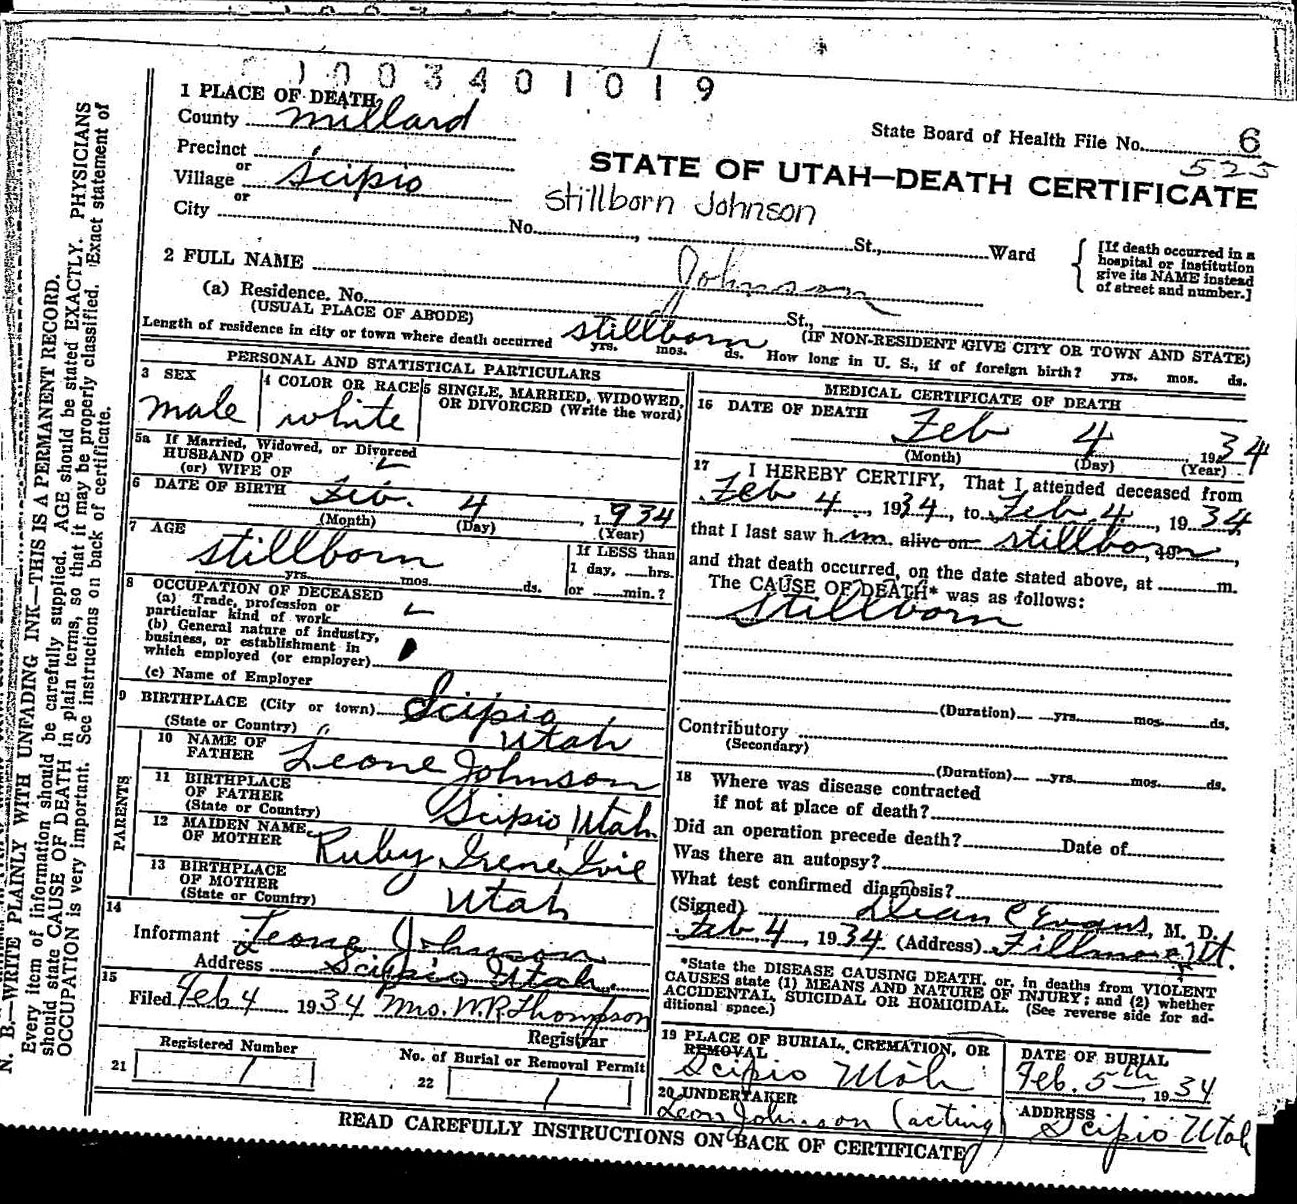 1003401019
1 PLACE OF DEATH
County Millard
State Board of Health File No. 6
525
Precinct
or
Village Scipio
or
City
STATE OF UTAH—DEATH CERTIFICATE
Stillborn Johnson
No. , St., Ward
[If death occurred in a
hospital or institution
give its NAME instead
of street and number.]
2 FULL NAME Johnson
(a) Residence. No. St.,
(USUAL PLACE OF ABODE) (IF NON-RESIDENT GIVE CITY OR TOWN AND STATE)
Length of residence in city or town where death occurred stillborn yrs. mos. ds. How long in U. S., if of foreign birth? yrs. mos. ds.
PERSONAL AND STATISTICAL PARTICULARS
3 SEX
male
4 COLOR OR RACE
white
5 SINGLE, MARRIED, WIDOWED,
OR DIVORCED (Write the word)
5a If Married, Widowed, or Divorced
HUSBAND OF
(or) WIFE OF
6 DATE OF BIRTH Feb. 4, 1934
(Month) (Day) (Year)
7 AGE
stillborn
yrs. mos. ds.
If LESS than
1 day, hrs.
or min.?
8 OCCUPATION OF DECEASED
(a) Trade, profession or
particular kind of work
(b) General nature of industry,
business, or establishment in
which employed (or employer)
(c) Name of Employer
9 BIRTHPLACE (City or town) Scipio
(State or Country) " Utah
PARENTS
10 NAME OF
FATHER Leone Johnson
11 BIRTHPLACE
OF FATHER
(State or Country) Scipio Utah
12 MAIDEN NAME
OF MOTHER Ruby Irene Ivie
13 BIRTHPLACE
OF MOTHER
(State or Country) Utah
14
Informant Leone Johnson
Address Scipio Utah.
15
Filed Feb 4 1934 Mrs. W.R. Thompson
Registrar
21 Registered Number
1
22 No. of Burial or Removal Permit
1
MEDICAL CERTIFICATE OF DEATH
16 DATE OF DEATH
Feb 4 1934
(Month) (Day) (Year)
17 I HEREBY CERTIFY, That I attended deceased from
Feb 4, 1934, to Feb 4, 1934
that I last saw h im alive on stillborn, 19 ,
and that death occurred, on the date stated above, at m.
The CAUSE OF DEATH* was as follows:
Stillborn
(Duration) yrs. mos. ds.
Contributory
(Secondary)
(Duration) yrs. mos. ds.
18 Where was disease contracted
if not at place of death?
Did an operation precede death? Date of
Was there an autopsy?
What test confirmed diagnosis?
(Signed) Dean C Evans, M. D.
Feb 4, 1934 (Address) Fillmore Ut.
*State the DISEASE CAUSING DEATH, or, in deaths from VIOLENT
CAUSES state (1) MEANS AND NATURE OF INJURY; and (2) whether
ACCIDENTAL, SUICIDAL OR HOMICIDAL. (See reverse side for ad-
ditional space.)
19 PLACE OF BURIAL, CREMATION, OR
REMOVAL
Scipio Utah
DATE OF BURIAL
Feb. 5th, 1934
20 UNDERTAKER
Leon Johnson (acting)
ADDRESS
Scipio Utah
READ CAREFULLY INSTRUCTIONS ON BACK OF CERTIFICATE
N. B.—WRITE PLAINLY WITH UNFADING INK—THIS IS A PERMANENT RECORD.
Every item of information should be carefully supplied. AGE should be stated EXACTLY. PHYSICIANS
should state CAUSE OF DEATH in plain terms, so that it may be properly classified. Exact statement of
OCCUPATION is very important. See instructions on back of certificate.